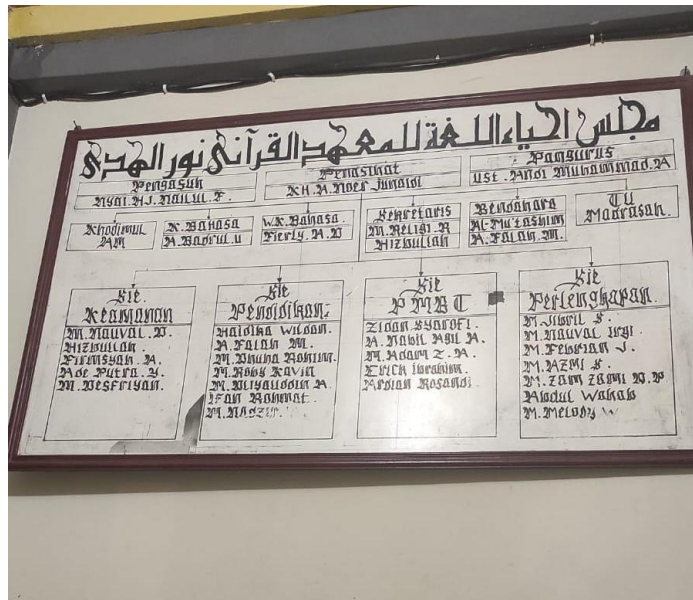 مجلس احياء اللغة للمعهد القرآني نور الهدى
Pengasuh
Nyai.HJ.Nailul.F.
Penasihat
KH.A.Noer Junaidi
Pangurus
Ust. Andi Muhammad.A
Khodimul
AM
K.Bahasa
A.Badrul.u
W.K.Bahasa.
Fierly.A.D
Sekretaris
M.Religi.R
Hizbullah
Bendahara
Al-Mu'tashim
A.Falah.M.
TU
Madrasah.
Sie.
Keamanan
M.Nauval.D.
Hizbullah.
Firmsyah.A.
Ade Putra.Y.
M.Desfriyan.
Sie
Pendidikan.
Haidika Wildan.
A Falah M.
M.Dhuha Rohim.
M.Roby Kavin
M.Uliyauddin A.
Ifan Rahmat.
M.Nadzir.
Sie
PMBT
Zidan Syarofi.
A.Nabil Aqil A.
M.Adam Z.A.
Erick Ibrahim.
Ardian Rosandi
Sie
Perlengkapan.
M.Jibril S.
M.Nauval Irgi.
M.Febrian J.
M.Azmi S.
M.Zam Zami D.P
Abdul Wahab
M.Melody W